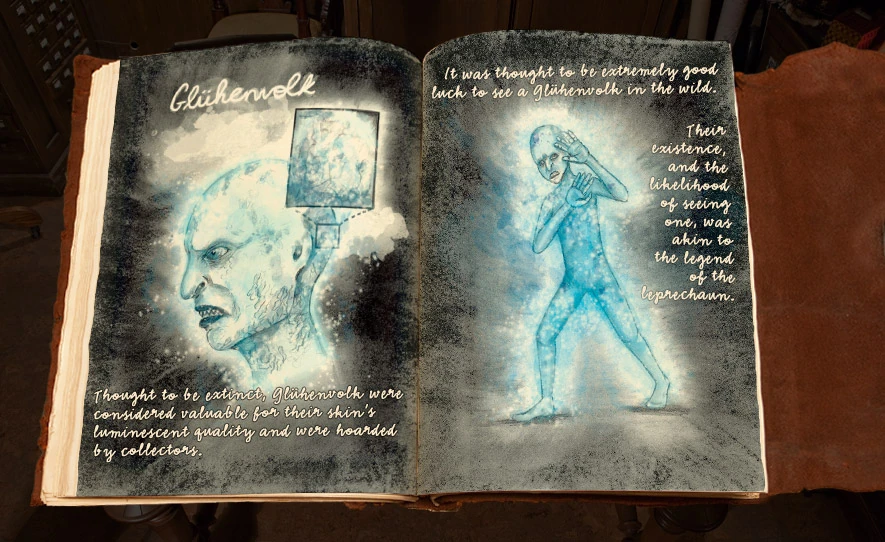 Glühenvolk
Thought to be extinct, Glühenvolk were
considered valuable for their skin's
luminescent quality and were hoarded
by collectors.
It was thought to be extremely good
luck to see a Glühenvolk in the wild.
Their
existence,
and the
likelihood
of seeing
one, was
akin to
the legend
of the
leprechaun.